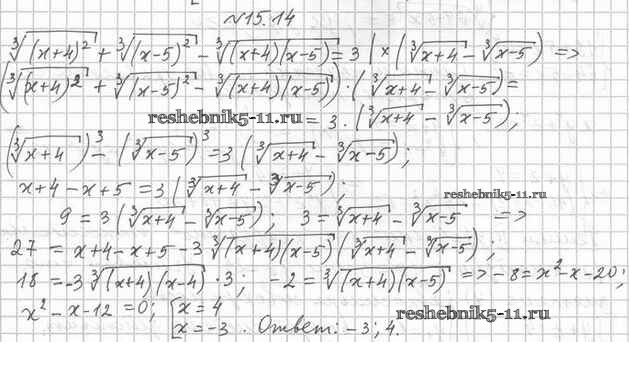 №15.14
∛((x+4)²) + ∛((x-5)²) - ∛((x+4)(x-5)) = 3 |×(∛(x+4) - ∛(x-5)) =>
(∛((x+4)²) + ∛((x-5)²) - ∛((x+4)(x-5))) · (∛(x+4) - ∛(x-5)) =
reshebnik5-11.ru = 3 · (∛(x+4) - ∛(x-5));
(∛(x+4))³ - (∛(x-5))³ = 3 (∛(x+4) - ∛(x-5));
x+4-x+5 = 3 (∛(x+4) - ∛(x-5));
reshebnik5-11.ru
9 = 3 (∛(x+4) - ∛(x-5)); 3 = ∛(x+4) - ∛(x-5) =>
27 = x+4-x+5-3 ∛((x+4)(x-5)) (∛(x+4) - ∛(x-5));
18 = -3 ∛((x+4)(x-4)) · 3; -2 = ∛((x+4)(x-5)) => -8 = x²-x-20;
x²-x-12 = 0; [x=4
[x=-3. Ответ: -3; 4.
reshebnik5-11.ru